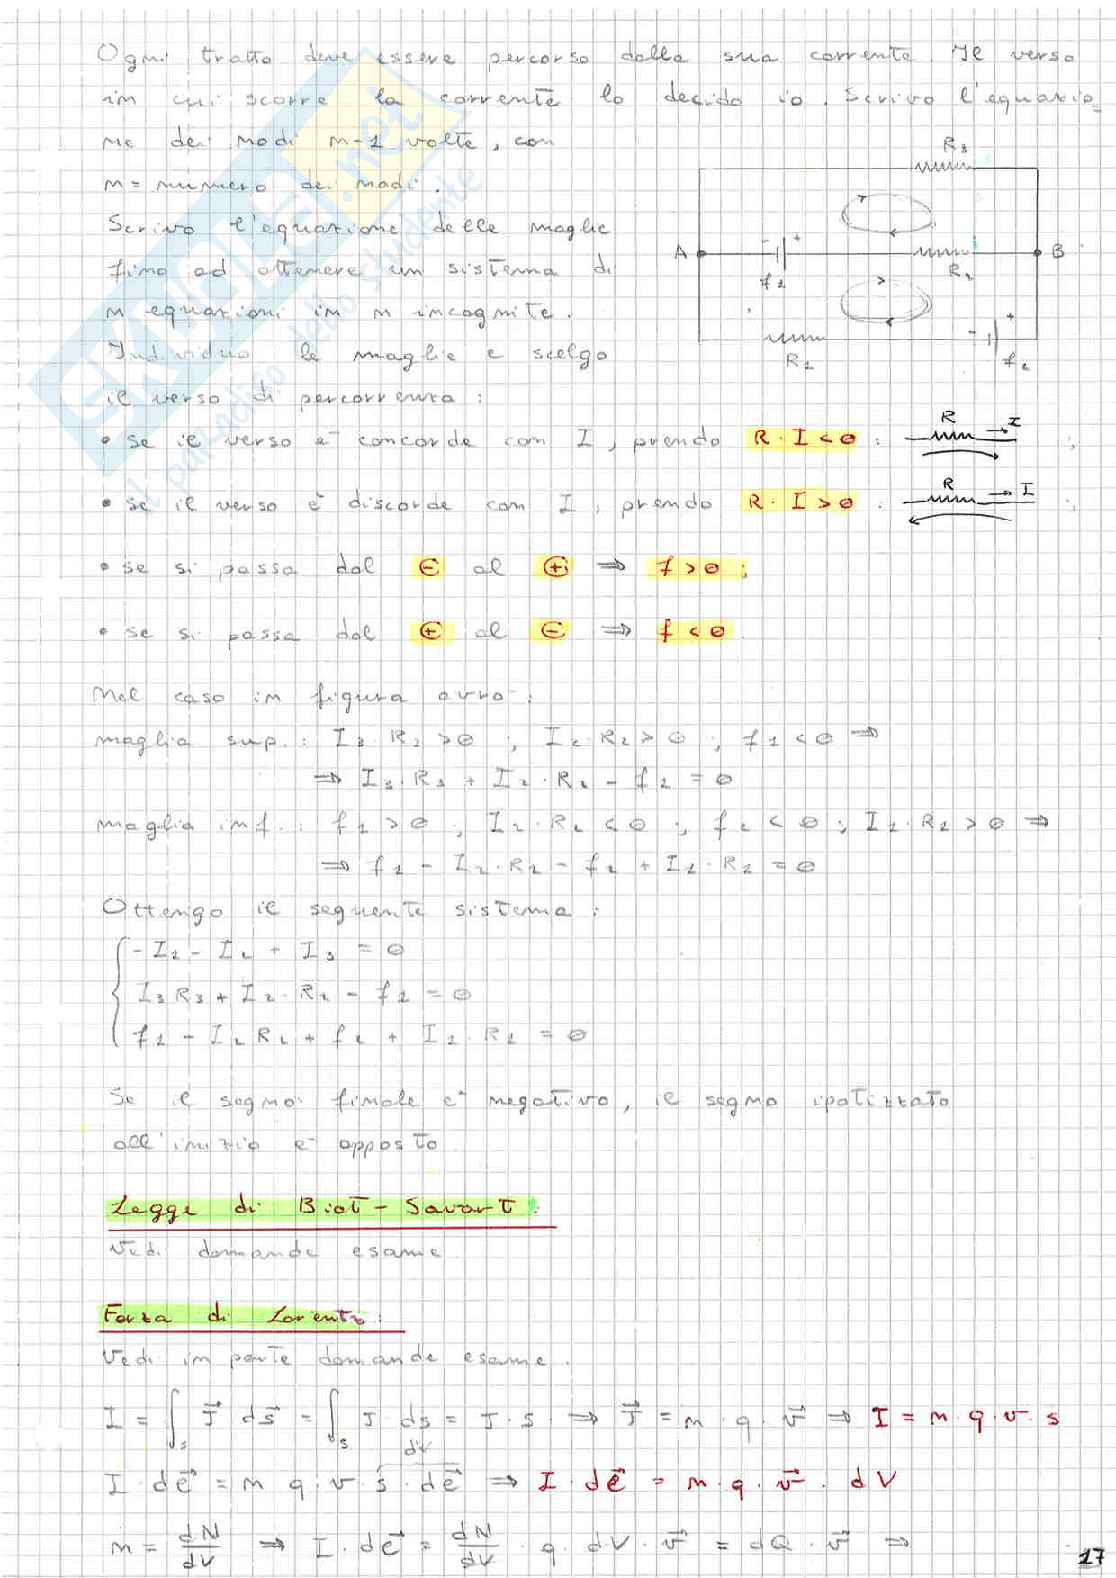 Ogni tratto deve essere percorso dalla sua corrente. Il verso
in cui scorre la corrente lo decido io. Scrivo l'equazio_
ne dei nodi n-1 volte, con
n = numero dei nodi.
Scrivo l'equazione delle maglie
fino ad ottenere un sistema di
n equazioni in n incognite.
Individuo le maglie e scelgo
il verso di percorrenza:
R3
A
- +
f1
R2
B
R1
- +
f2
• se il verso è concorde con I, prendo R·I<0: R I ;
• se il verso è discorde con I, prendo R·I>0: R I ;
• se si passa dal ⊖ al ⊕ ⇒ f>0;
• se si passa dal ⊕ al ⊖ ⇒ f<0.
Nel caso in figura avrò:
maglia sup.: I3·R3>0 ; I2·R2>0 ; f1<0 ⇒
⇒ I3·R3 + I2·R2 - f1 = 0
maglia inf.: f1>0 ; I2·R2<0 ; f2<0 ; I1·R1>0 ⇒
⇒ f1 - I2·R2 - f2 + I1·R1 = 0
Ottengo il seguente sistema:
-I1 - I2 + I3 = 0
I3R3 + I2·R2 - f1 = 0
f1 - I2R2 + f2 + I1·R1 = 0
Se il segno finale è negativo, il segno ipotizzato
all'inizio è opposto
Legge di Biot-Savart:
Vedi domande esame
Forza di Lorentz:
Vedi in parte domande esame.
I = ∫s J⃗ ds⃗ = ∫s J ds = J·s ⇒ J⃗ = n·q·v⃗ ⇒ I = n·q·v·s
dV
I·dℓ⃗ = n·q·v·s·dℓ⃗ ⇒ I·dℓ⃗ = n·q·v⃗·dV
n = dN/dV ⇒ I·dℓ⃗ = dN/dV·q·dV·v⃗ = dQ·v⃗ ⇒
17
SKUOLA.net
il paradiso dello studente